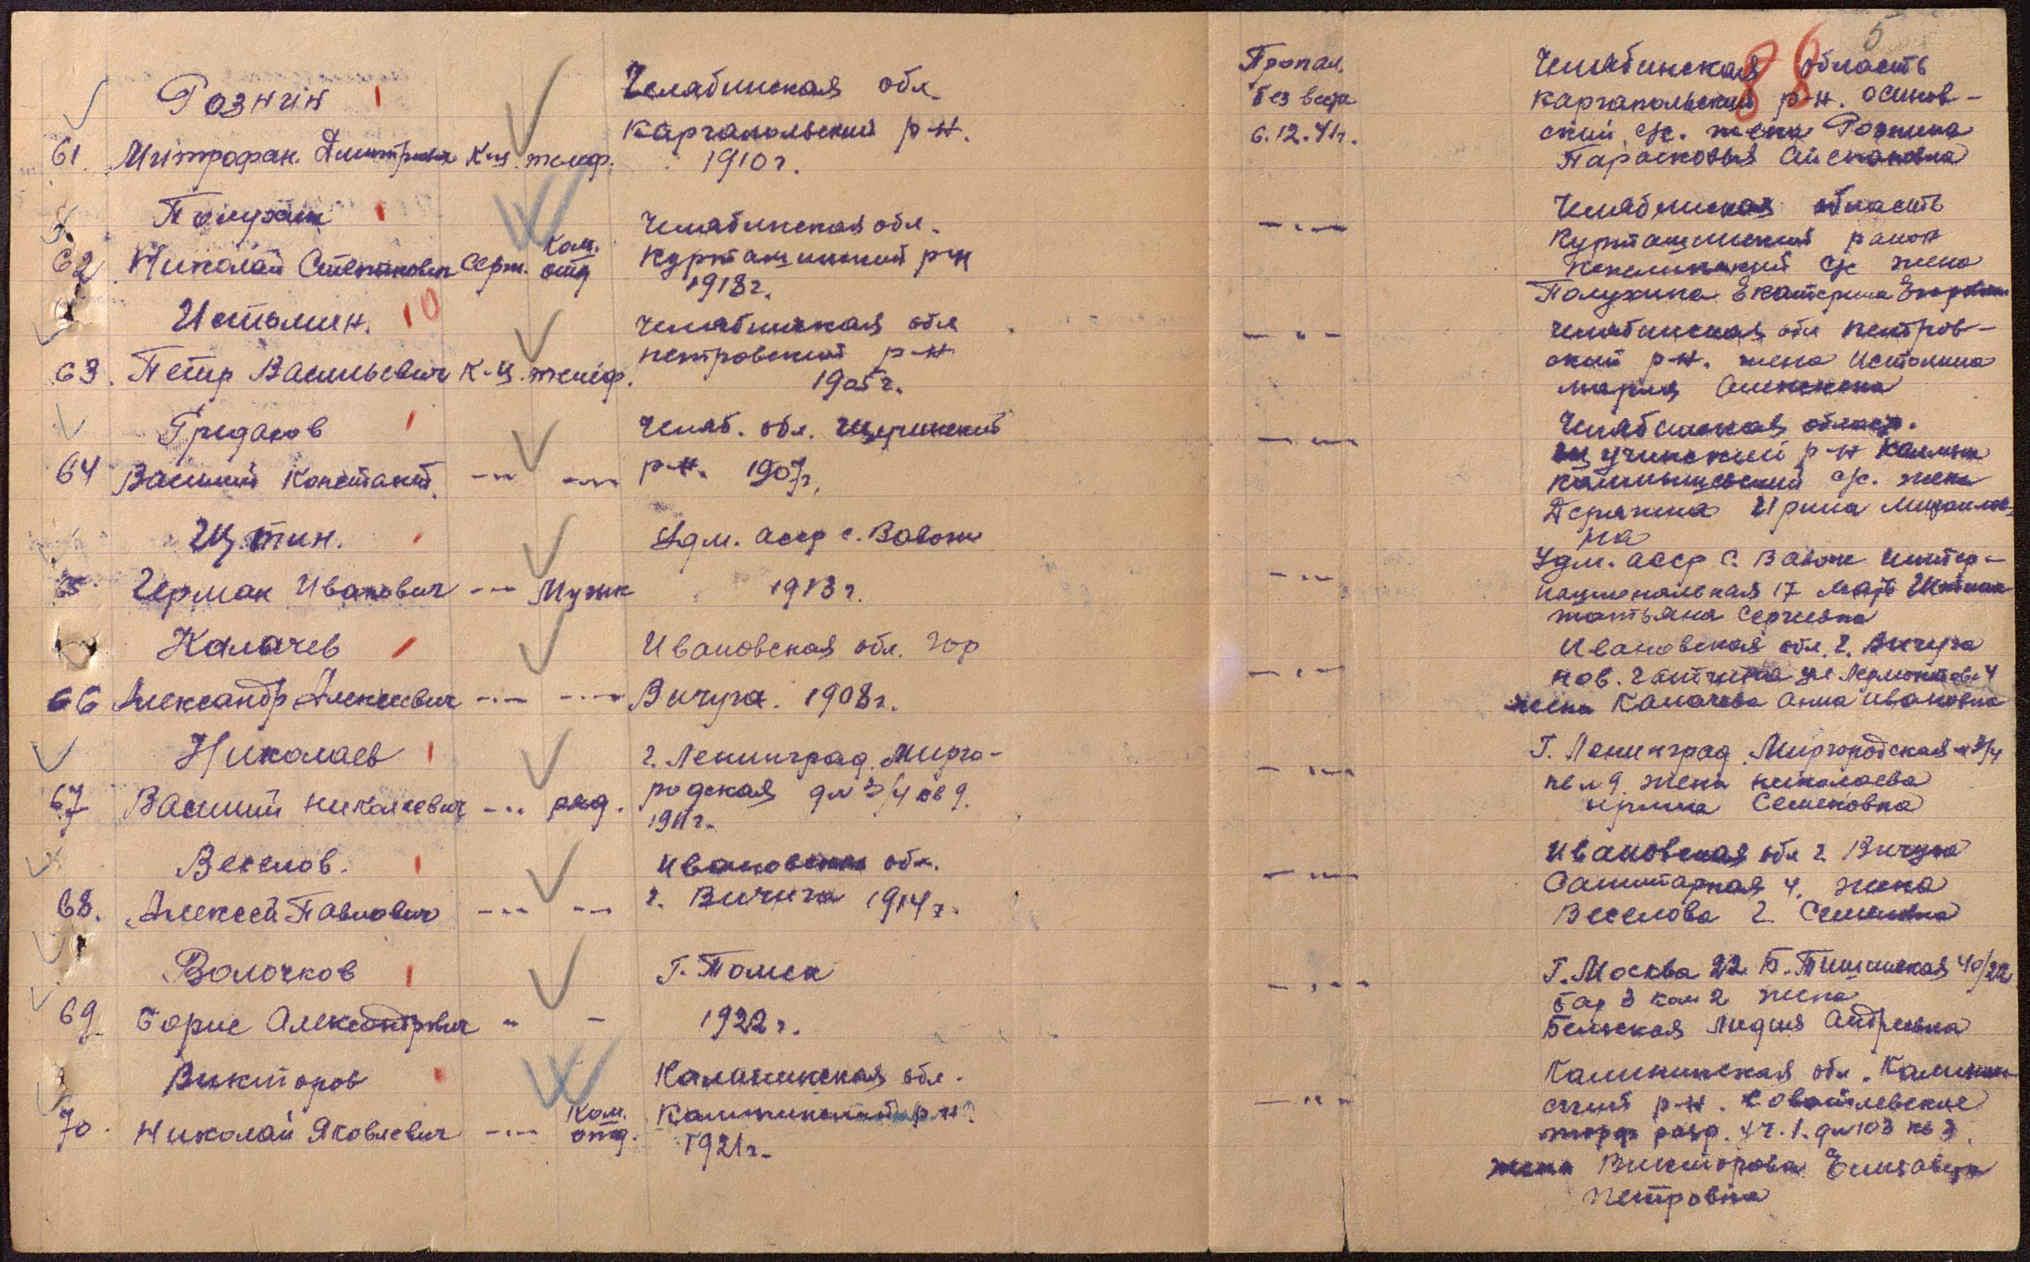 5
86
Рознин
61. Митрофан Дмитриев К-ц. телеф.
Челябинская обл.
Каргапольский р-н.
1910 г.
Пропал
без вести
6.12.41г.
Челябинская область
Каргапольский р-н. Осинов-
ский с/с. жена Рознина
Парасковья
Полухин
62 Николай Степанович Серж. Ком. отд
Челябинская обл.
Курташинский р-н
1918 г.
-"-
Челябинская область
Курташинский район
с/с жена
Полухина Екатерина Егоровна
Истомин.
63. Петр Васильевич К-ц. телеф.
Челябинская обл
Петровский р-н
1905 г.
-"-
Челябинская обл Петров-
ский р-н. жена Истомина
Мария
Гредасов
64 Василий Констант. -"- -"-
Челяб. обл. Щучинский
р-н. 1907г.
-"-
Челябинская област.
Щучинский р-н
с/с. жена
Ирина Михайлов-
на
Щ тин.
65 Герман Иванович -"- Музык
Удм. АССР с. Вавож
1913 г.
-"-
Удм. АССР с. Вавож Интер-
национальная 17 мать
Татьяна Сергеевна
Калачев
66 Александр Алексеевич -"- -"-
Ивановская обл. гор
Вичуга. 1908 г.
-"-
Ивановская обл. г. Вичуга
нов. Гольчиха ул Лермонтова 4
жена Калачева Анна Ивановна
Николаев
67 Василий Николаевич -"- ряд.
г. Ленинград Мирго-
родская д№ 3/4 кв 9.
1911 г.
-"-
Г. Ленинград Миргородская 3/4
кв № 9. жена Николаева
Ирина Семеновна
Веселов.
68. Алексей Павлович -"- -"-
Ивановская обл.
г. Вичуга 1914 г.
-"-
Ивановская обл г. Вичуга
Санитарная 4. жена
Веселова Г. Семеновна
Волочков
69 Борис Александрович - -
Г. Томск
1922 г.
-"-
Г. Москва 22 Б. Тишинская 40/22
бар 3 ком 2 жена
Бельская Лидия Андреевна
Викторов
70. Николай Яковлевич -"- Ком. отд.
Калининская обл.
Калининский р-н.
1921 г.
-"-
Калининская обл. Калинин-
ский р-н.
торф разр. уч. 1. д№103 кв 3.
жена Викторова Елизавета
Петровна